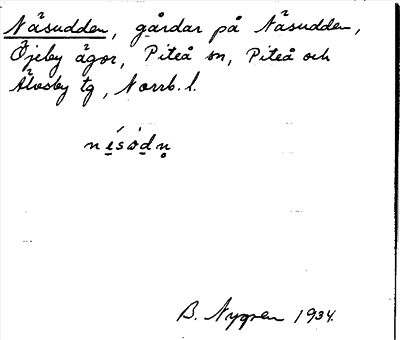 Näsudden, gårdar på Näsudden,
Öjeby ägor, Piteå sn, Piteå och
Älvsby tg, Norrb. l.
nésòdn̥
B. Nygren 1934.